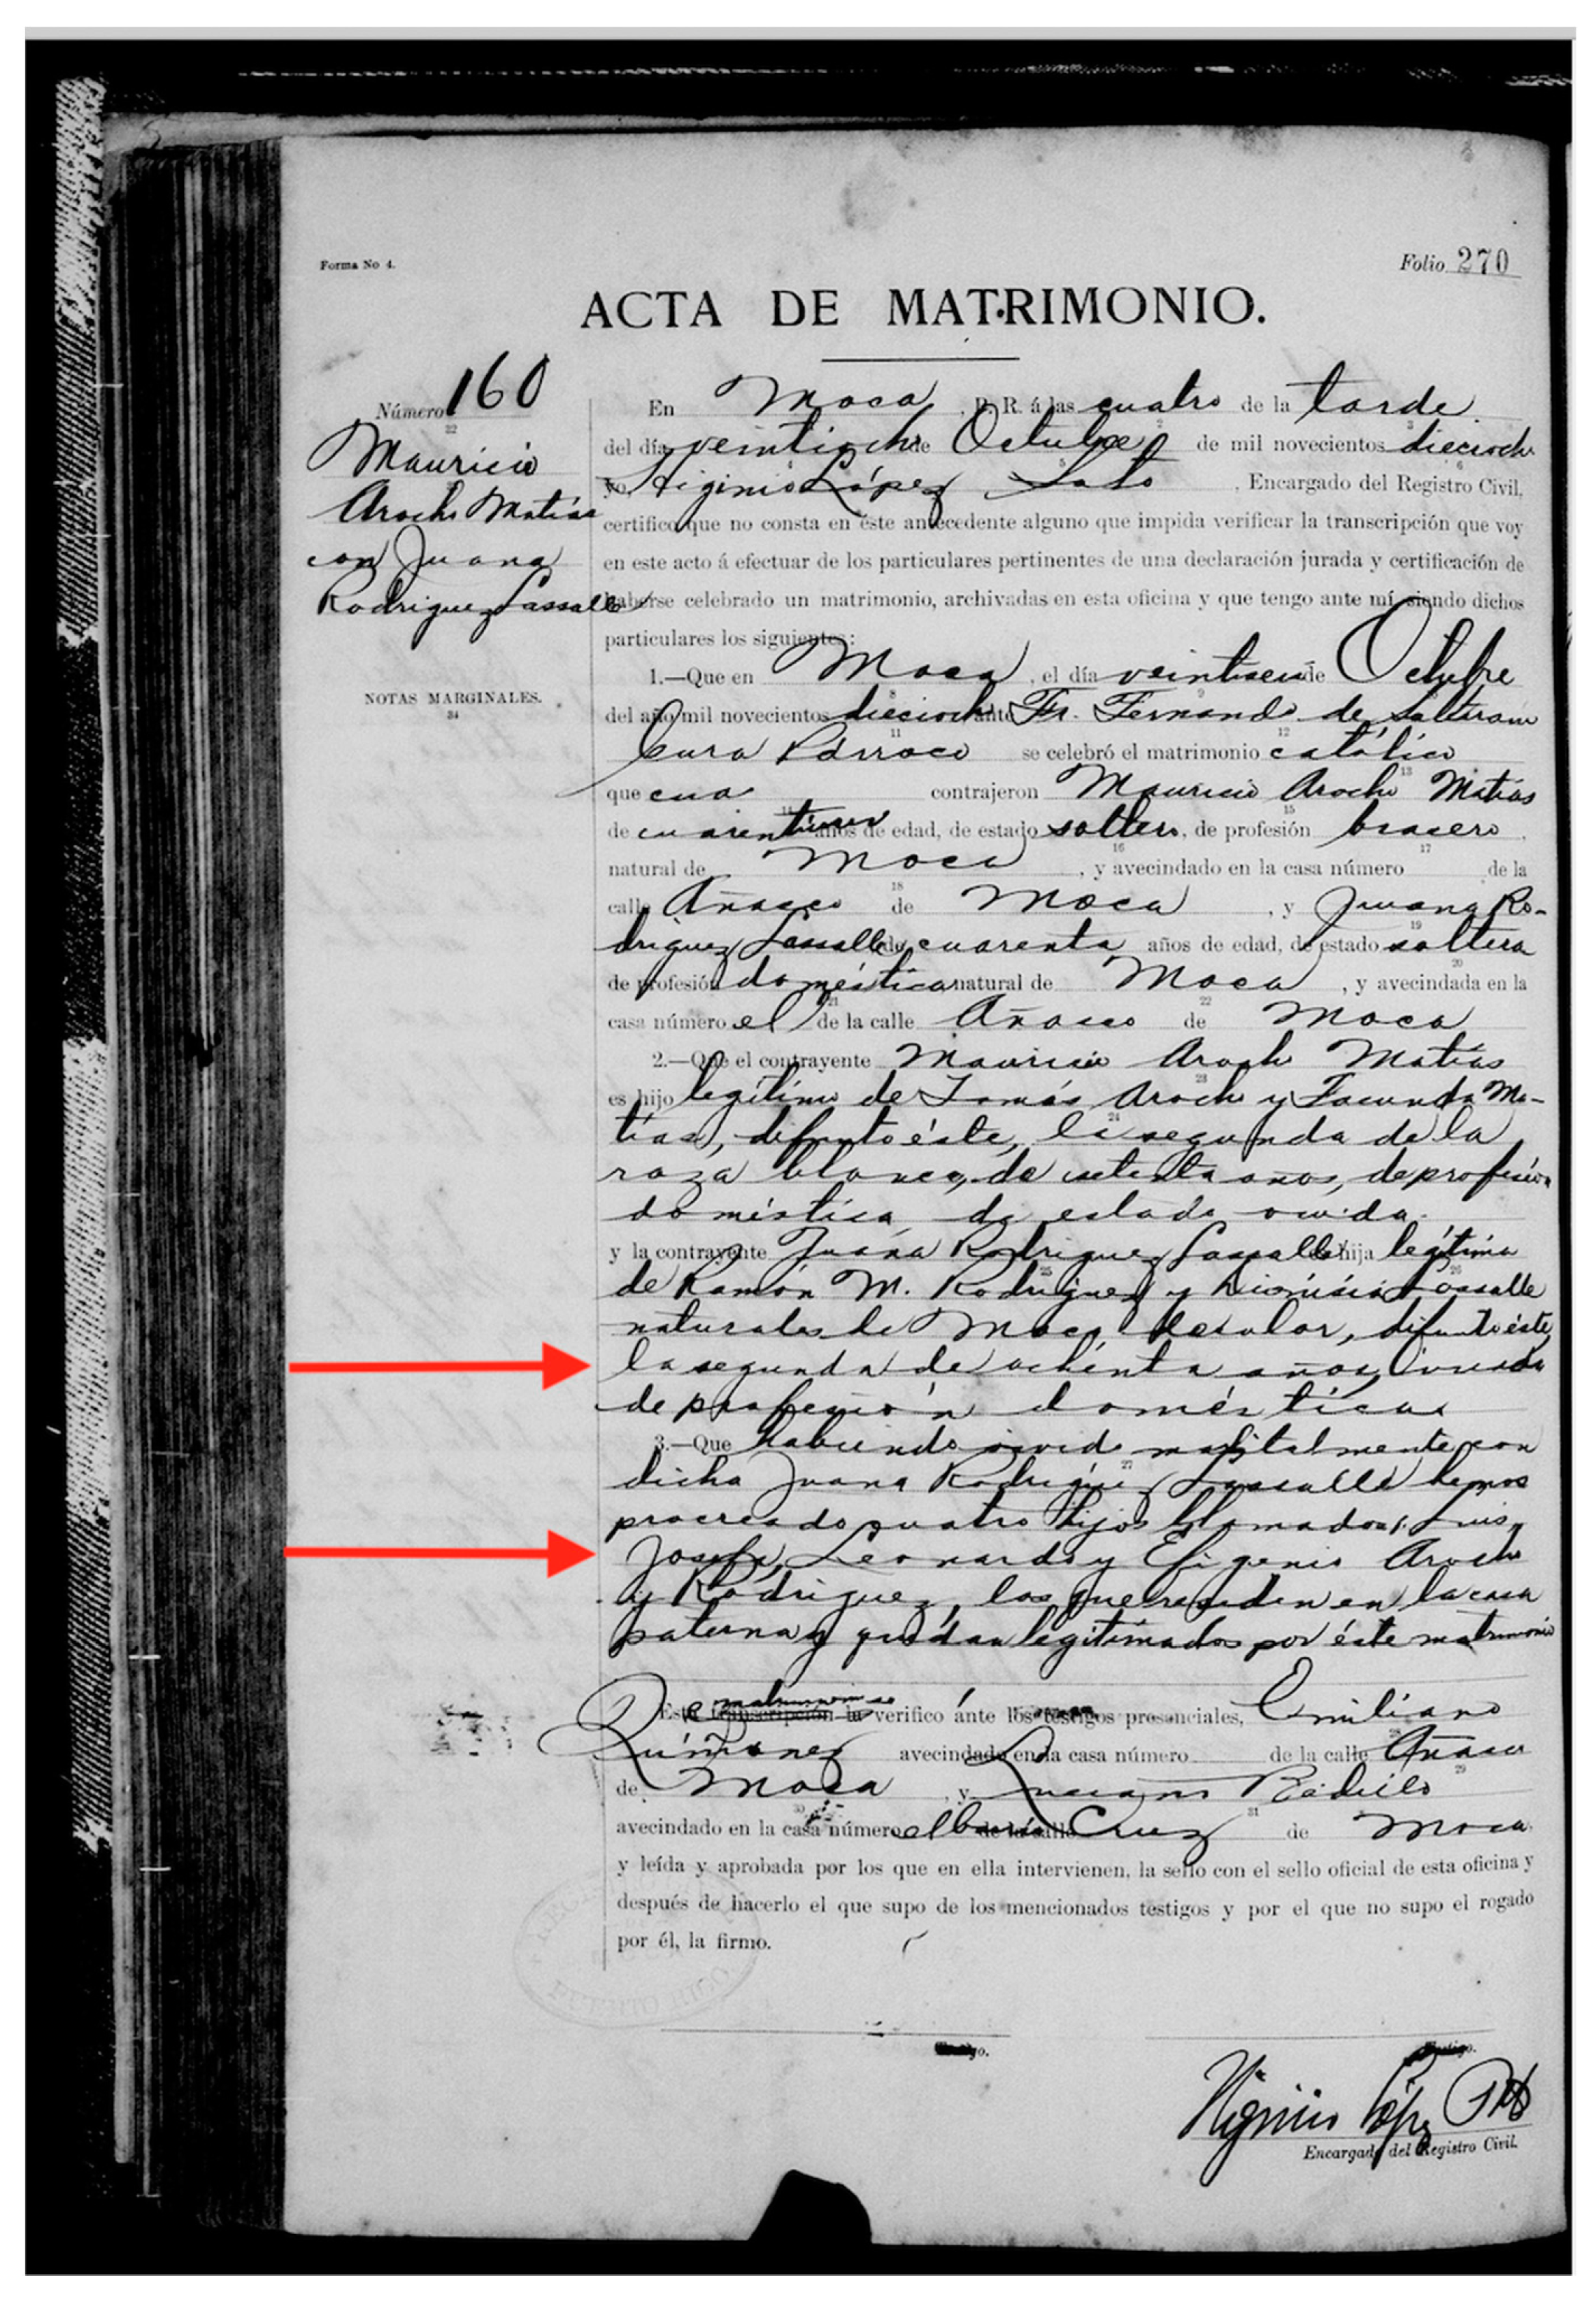 Forma No 4.
Folio 270
ACTA DE MATRIMONIO.
Número 160
Mauricio
Arocho Matías
con Juana
Rodriguez Lassalle
NOTAS MARGINALES.
En Moca, P. R. á las cuatro de la tarde
del día veintiocho de Octubre de mil novecientos dieciocho
yo, Higinio López Soto, Encargado del Registro Civil,
certifico que no consta en éste antecedente alguno que impida verificar la transcripción que voy
en este acto á efectuar de los particulares pertinentes de una declaración jurada y certificación de
haberse celebrado un matrimonio, archivadas en esta oficina y que tengo ante mí, siendo dichos
particulares los siguientes:
1.—Que en Moca, el día veintiseis de Octubre
del año mil novecientos dieciocho ante Fr. Fernando de
Cura Párroco se celebró el matrimonio católico
que contrajeron Mauricio Arocho Matías
de años de edad, de estado soltero, de profesión bracero
natural de Moca, y avecindado en la casa número de la
calle Añasco de Moca, y Juana Ro-
driguez Lassalle de cuarenta años de edad, de estado soltera
de profesión doméstica natural de Moca, y avecindada en la
casa número el de la calle Añasco de Moca
2.—Que el contrayente Mauricio Arocho Matías
es hijo legítimo de Tomás Arocho y Facunda Ma-
tías, difunto éste, la segunda de la
raza blanca, de setenta años, de profesión
doméstica, de estado viuda.
y la contrayente Juana Rodriguez Lassalle hija legítima
de Ramón M. Rodríguez y Dionisia Lassalle
naturales de Moca, de color, difunto éste,
la segunda de ochenta años, viuda
de profesión doméstica
3.—Que habiendo vivido maritalmente con
dicha Juana Rodriguez Lassalle hemos
procreado cuatro hijos llamados: Luis,
Josefa, Leonardo y Efigenio Arocho
y Rodriguez, los que residen en la casa
paterna y quedan legitimados por éste matrimonio
Este matrimonio se verifico ánte los testigos presenciales, Emiliano
Quiñonez avecindado en la casa número de la calle Añasco
de Moca, y Luciano Badillo
avecindado en la casa número el barrio Cruz de Moca
y leída y aprobada por los que en ella intervienen, la sello con el sello oficial de esta oficina y
después de hacerlo el que supo de los mencionados testigos y por el que no supo el rogado
por él, la firmo.
PUERTO RICO
Higinio López
Encargado del Registro Civil.